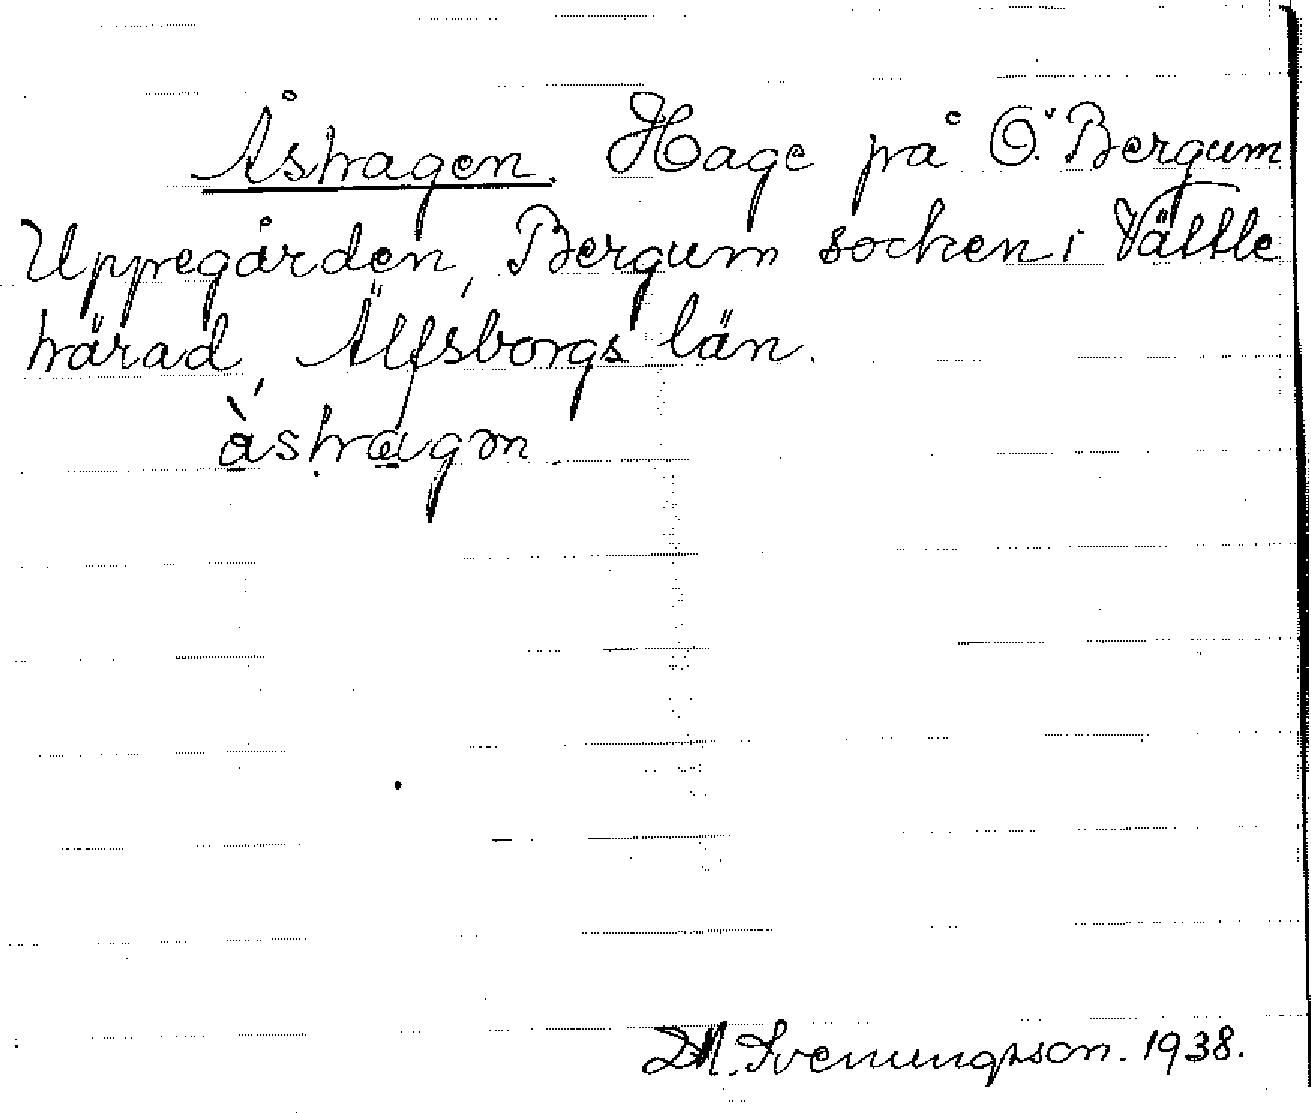 Åshagen. Hage på Ö. Bergum
Uppegården, Bergum socken i Vättle
härad, Älfsborgs län.
åshagɔn
D.M. Svenungsson. 1938.